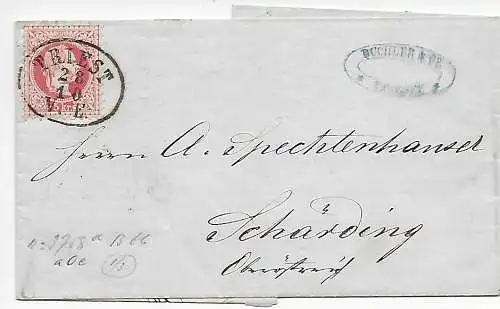 TRIEST
28
10
V. E.
BÜCHLER & CO
TRIEST
Herrn A. Spechtenhauser
Schärding
Oberöstreich
1866
a0e